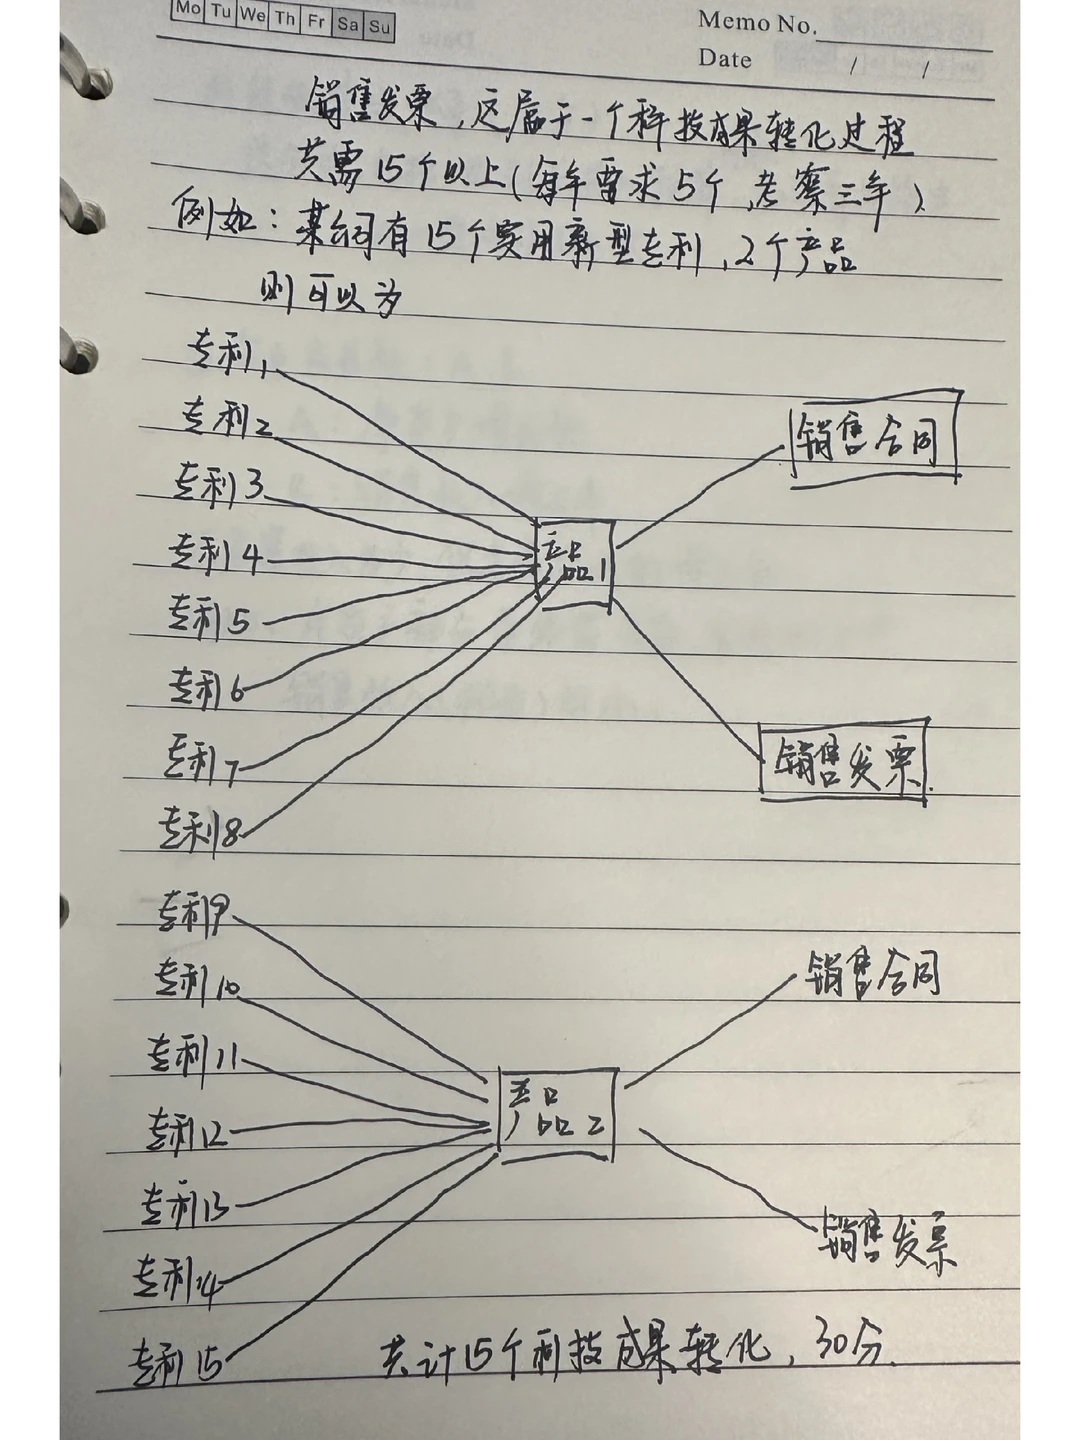 Mo Tu We Th Fr Sa Su
Memo No.
Date / /
销售发票,这属于一个科技成果转化过程
共需15个以上(每年要求5个,考察三年)
例如:某公司有15个实用新型专利,2个产品
则可以为
专利1
专利2
专利3
专利4
专利5
专利6
专利7
专利8
产品1
销售合同
销售发票
专利9
专利10
专利11
专利12
专利13
专利14
专利15
产品2
销售合同
销售发票
共计15个科技成果转化,30分.